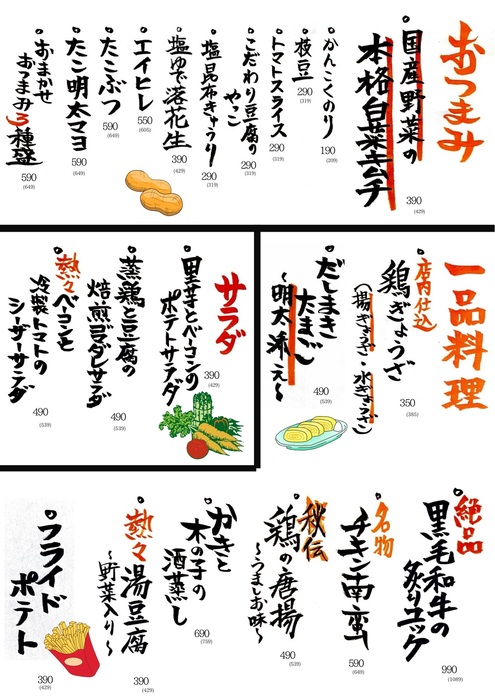 おつまみ
国産野菜の
本格白菜キムチ
390
(429)
かんこくのり
190
(209)
枝豆
290
(319)
トマトスライス
290
(319)
こだわり豆腐の
やっこ
290
(319)
塩昆布きゅうり
290
(319)
塩ゆで落花生
390
(429)
エイヒレ
550
(605)
たこぶつ
590
(649)
たこ明太マヨ
590
(649)
おまかせ
おつまみ3種盛
590
(649)
一品料理
店内仕込
鶏ぎょうざ
(揚ぎょうざ・水ぎょうざ)
350
(385)
だしまき
たまご
〜明太添え〜
490
(539)
サラダ
里芋とベーコンの
ポテトサラダ
390
(429)
蒸鶏と豆腐の
焙煎ゴマダレサラダ
490
(539)
熱々ベーコンと
冷製トマトの
シーザーサラダ
490
(539)
絶品
黒毛和牛の
炙りユッケ
990
(1089)
名物
チキン南蛮
590
(649)
秘伝
鶏の唐揚
〜うましお味〜
490
(539)
かきと
木の子の
酒蒸し
690
(759)
熱々湯豆腐
〜野菜入り〜
390
(429)
フライド
ポテト
390
(429)